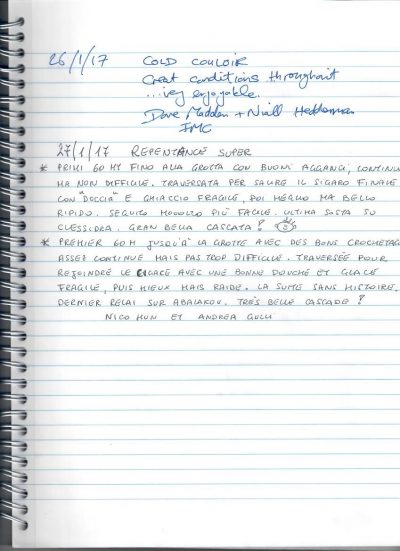 26/1/17 COLD COULOIR
Great conditions throughout
...very enjoyable.
Dave Madden + Niall Hedderman
IMC
27/1/17 REPENTANCE SUPER
* PRIMI 60 MT FINO ALLA GROTTA CON BUONI AGGANCI, CONTINUO
MA NON DIFFICILE. TRAVERSATA PER SALIRE IL SIGARO FINALE
CON "DOCCIA" E GHIACCIO FRAGILE, POI MEGLIO MA BELLO
RIPIDO. SEGUITO MOOOLTO PIÙ FACILE. ULTIMA SOSTA SU
CLESSIDRA. GRAN BELLA CASCATA!
* PREMIER 60 M JUSQU'À LA GROTTE AVEC DES BONS CROCHETAG
ASSEZ CONTINUE MAIS PAS TROP DIFFICILE. TRAVERSÉE POUR
REJOINDRE LE CIGARE AVEC UNE BONNE DOUCHE ET GLACE
FRAGILE, PUIS MIEUX MAIS RAIDE. LA SUITE SANS HISTOIRE.
DERNIER RELAI SUR ABALAKOV. TRÈS BELLE CASCADE!
NICO HUN ET ANDREA